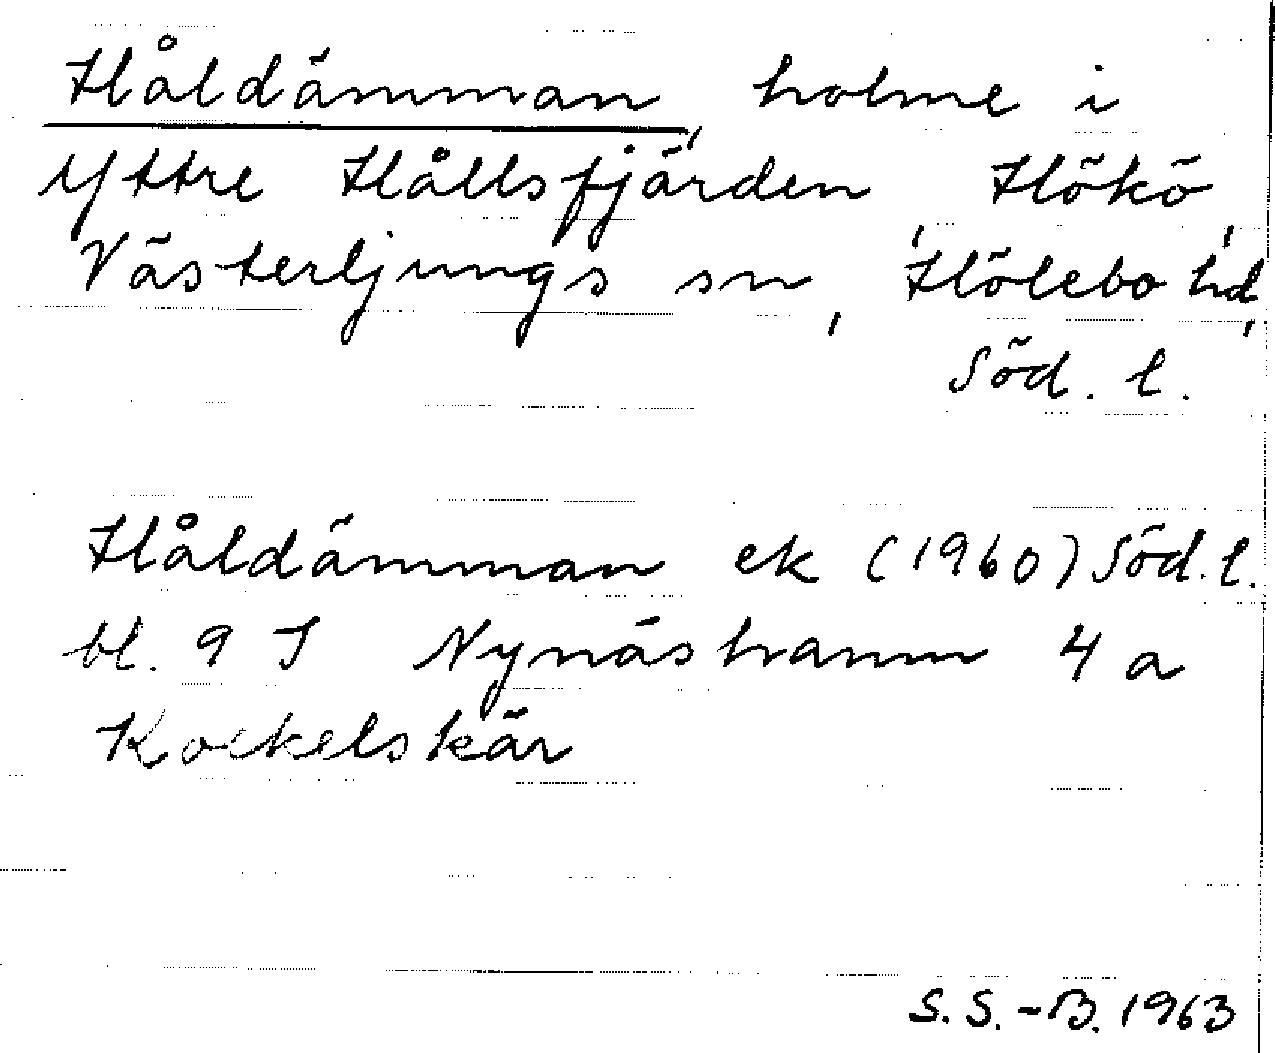 Håldämman, holme i
Yttre Hållsfjärden, Hökö,
Västerljungs sn, Hölebo hd,
Söd. l.
Håldämman ek (1960) Söd. l.
bl. 9 I Nynäshamn 4 a
Kockelskär
S. S.-B. 1963